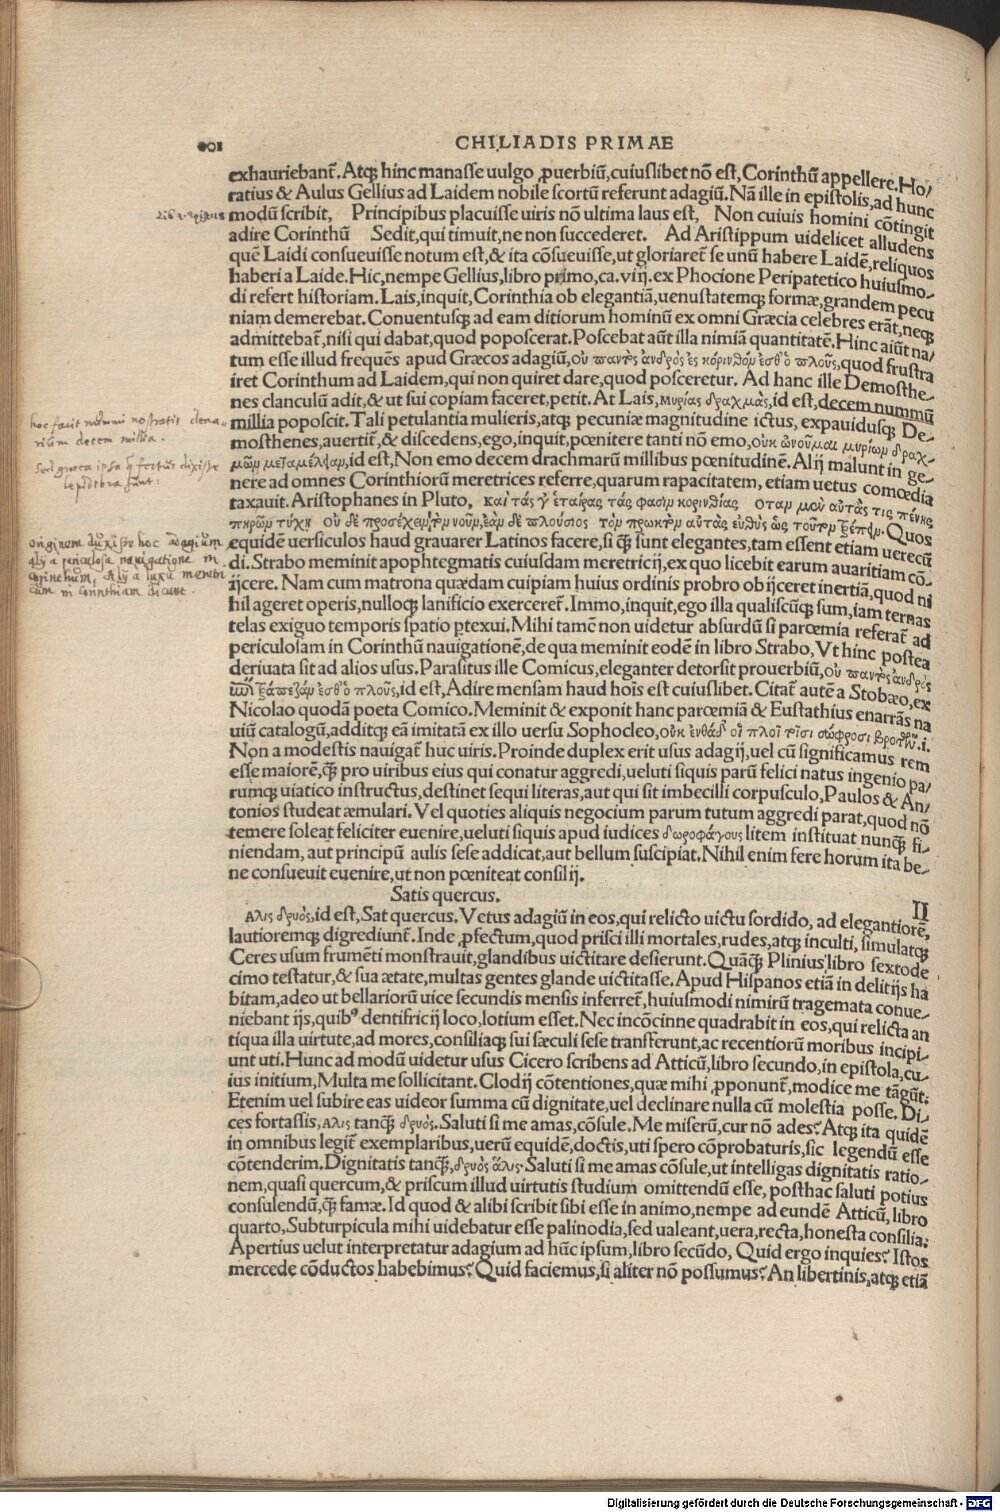 CHILIADIS PRIMAE
exhauriebant̃. Atq; hinc manasse uulgo ꝓuerbiũ, cuiuslibet nõ est, Corinthũ appellere. Ho/
ratius & Aulus Gellius ad Laidem nobile scortũ referunt adagiũ. Nã ille in epistolis, ad hunc
modũ scribit, Principibus placuisse uiris nõ ultima laus est, Non cuiuis homini cõtingit
adire Corinthũ Sedit, qui timuit, ne non succederet. Ad Aristippum uidelicet alludens
quẽ Laidi consueuisse notum est, & ita cõsueuisse, ut gloriaret̃ se unũ habere Laidẽ, reliquos
haberi a Laide. Hic, nempe Gellius, libro primo, ca. viij. ex Phocione Peripatetico huiusmo-
di refert historiam. Lais, inquit, Corinthia ob elegantiã, uenustatemq; formæ, grandem pecu
niam demerebat. Conuentusq; ad eam ditiorum hominũ ex omni Græcia celebres erãt, neq;
admittebat̃, nisi qui dabat, quod poposcerat. Poscebat aũt illa nimiã quantitatẽ. Hinc aiũt na/
tum esse illud frequẽs apud Græcos adagiũ, οὐ παντὸς ἀνδρὸς ἐς κόρινθόν ἐσθ' ὁ πλοῦς, quod frustra
iret Corinthum ad Laidem, qui non quiret dare, quod posceretur. Ad hanc ille Demosthe-
nes clanculũ adit, & ut sui copiam faceret, petit. At Lais, μυρίας δραχμὰς, id est, decem nummũ
millia poposcit. Tali petulantia mulieris, atq; pecuniæ magnitudine ictus, expauidusq; De-
mosthenes, auertit̃, & discedens, ego, inquit, pœnitere tanti nõ emo, οὐκ ὠνοῦμαι μυρίων δραχ-
μῶν μεταμέλειαν, id est, Non emo decem drachmarũ millibus pœnitudinẽ. Alij malunt in ge-
nere ad omnes Corinthiorũ meretrices referre, quarum rapacitatem, etiam uetus comœdia
taxauit. Aristophanes in Pluto, καὶ τάς γ' ἑταίρας τάς φασιν κορινθίας Οταν μὲν αὐτάς τις πένης
πειρῶν τύχῃ οὐ δὲ προσέχειν τὸν νοῦν, ἐὰν δὲ πλούσιος τὸν πρωκτὸν αὐτὰς εὐθὺς ὡς τοῦτον τρέπειν. Quos
equidẽ uersiculos haud grauarer Latinos facere, si q̃; sunt elegantes, tam essent etiam uerecũ
di. Strabo meminit apophtegmatis cuiusdam meretricij, ex quo licebit earum auaritiam cõ-
ijcere. Nam cum matrona quædam cuipiam huius ordinis probro obijceret inertiã, quod ni
hil ageret operis, nulloq; lanificio exerceret̃. Immo, inquit, ego illa qualiscũq; sum, iam ternas
telas exiguo temporis spatio ptexui. Mihi tamẽ non uidetur absurdũ si parœmia referat̃ ad
periculosam in Corinthũ nauigationẽ, de qua meminit eodẽ in libro Strabo, Vt hinc postea
deriuata sit ad alios usus. Parasitus ille Comicus, eleganter detorsit prouerbiũ, οὐ παντὸς ἀνδρὸς
ἐπὶ τράπεζάν ἐσθ' ὁ πλοῦς, id est, Adire mensam haud hoĩs est cuiuslibet. Citat̃ autẽ a Stobæo, ex
Nicolao quodã poeta Comico. Meminit & exponit hanc parœmiã & Eustathius enarrãs na
uiũ catalogũ, additq; eã imitatã ex illo uersu Sophocleo, οὐκ ἐνθάδ' οἱ πλοῖ τοῖσι σώφροσι βροτῶν. i.
Non a modestis nauigat̃ huc uiris. Proinde duplex erit usus adagij, uel cũ significamus rem
esse maiorẽ, q̃; pro uiribus eius qui conatur aggredi, ueluti siquis parũ felici natus ingenio pa/
rumq; uiatico instructus, destinet sequi literas, aut qui sit imbecilli corpusculo, Paulos & An/
tonios studeat æmulari. Vel quoties aliquis negocium parum tutum aggredi parat, quod nõ
temere soleat feliciter euenire, ueluti siquis apud iudices δωροφάγους litem instituat nunq̃; fi-
niendam, aut principũ aulis sese addicat, aut bellum suscipiat. Nihil enim fere horum ita be-
ne consueuit euenire, ut non pœniteat consilij.
Satis quercus. II
Αλις δρυὸς, id est, Sat quercus. Vetus adagiũ in eos, qui relicto uictu sordido, ad elegantiorẽ,
lautioremq; digrediunt̃. Inde ꝓfectum, quod prisci illi mortales, rudes, atq; inculti, simulatq;
Ceres usum frumẽti monstrauit, glandibus uictitare desierunt. Quãq̃; Plinius libro sextode
cimo testatur, & sua ætate, multas gentes glande uictitasse. Apud Hispanos etiã in delitijs ha
bitam, adeo ut bellariorũ uice secundis mensis inferret̃, huiusmodi nimirũ tragemata conue-
niebant ijs, quibꝰ dentifricij loco, lotium esset. Nec incõcinne quadrabit in eos, qui relicta an
tiqua illa uirtute, ad mores, consiliaq; sui sæculi sese transferunt, ac recentiorũ moribus incipi-
unt uti. Hunc ad modũ uidetur usus Cicero scribens ad Atticũ, libro secundo, in epistola, cu-
ius initium, Multa me sollicitant. Clodij cõtentiones, quæ mihi ꝓponunt̃, modice me tãgũt:
Etenim uel subire eas uideor summa cũ dignitate, uel declinare nulla cũ molestia posse. Di-
ces fortassis, ἅλις tanq̃; δρυὸς. Saluti si me amas, cõsule. Me miserũ, cur nõ ades? Atq; ita quidẽ
in omnibus legit̃ exemplaribus, uerũ equidẽ, doctis, uti spero cõprobaturis, sic legendũ esse
cõtenderim. Dignitatis tanq̃;, δρυὸς ἅλις. Saluti si me amas cõsule, ut intelligas dignitatis ratio-
nem, quasi quercum, & priscum illud uirtutis studium omittendũ esse, posthac saluti potius
consulendũ, q̃; famæ. Id quod & alibi scribit sibi esse in animo, nempe ad eundẽ Atticũ, libro
quarto, Subturpicula mihi uidebatur esse palinodia, sed ualeant, uera, recta, honesta consilia:
Apertius uelut interpretatur adagium ad hũc ipsum, libro secũdo, Quid ergo inquies? Istos
mercede cõductos habebimus? Quid faciemus, si aliter nõ possumus? An libertinis, atq; etiã
hoc facit nummi nostratis dena-
rium decem millia.
originem duxisse hoc adagium
alij a periculosa navigatione in
Corinthum, Alij a luxu meretri
cum in Corinthiam dicunt.
Digitalisierung gefördert durch die Deutsche Forschungsgemeinschaft - DFG